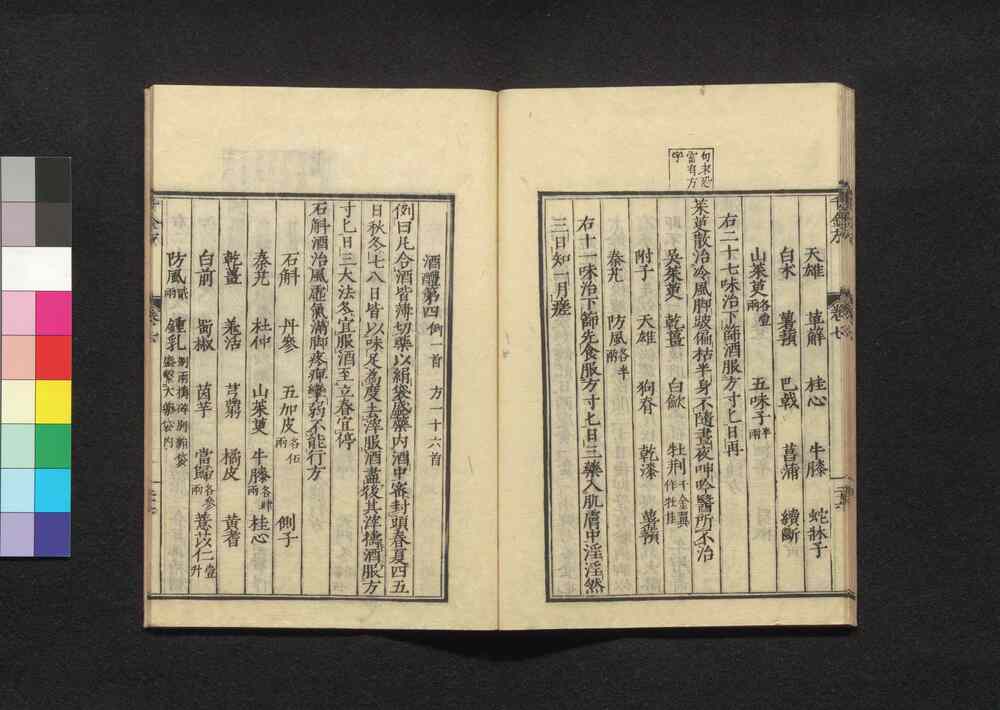 天雄 萆解 桂心 牛膝 蛇牀子
白朮 薯蕷 巴戟 菖蒲 續斷
山茱萸各壹兩 五味子半兩
右二十七味治下篩酒服方寸匕日再
茱萸散治冷風脚跛偏枯半身不隨晝夜呻吟醫所不治
吳茱萸 乾薑 白歛 牡荆千金翼作牡桂
附子 天雄 狗脊 乾漆 薯蕷
秦艽 防風各半兩
右十一味治下篩先食服方寸匕日三藥入肌膚中淫淫然
三日知一月瘥
酒醴第四例一首 方一十六首
例曰凡合酒皆薄切藥以絹袋盛藥內酒中密封頭春夏四五
日秋冬七八日皆以味足爲度去滓服酒盡後其滓擣酒服方
寸匕日三大法冬宜服酒至立春宜停
石斛酒治風虛氣滿脚疼痹攣弱不能行方
石斛 丹參 五加皮各伍兩 側子
秦艽 杜仲 山茱萸 牛膝各肆兩 桂心
乾薑 羗活 芎藭 橘皮 黃耆
白前 蜀椒 茵芋 當歸各參兩 薏苡仁壹升
防風貳兩 鍾乳捌兩擣碎別絹袋盛繫大藥袋內
千金方 卷七